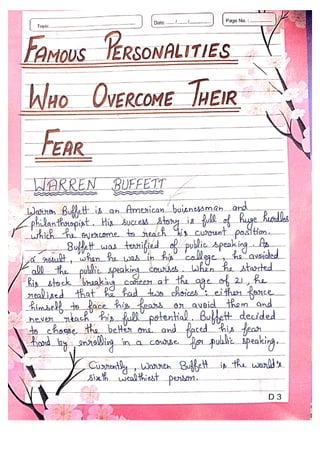 Topic
Date ...... / ...... / ......
Page No. :
FAMOUS PERSONALITIES
WHO OVERCOME THEIR
FEAR
WARREN BUFFETT
Warren Buffett is an American buisnessman and
philanthropist. His success story is full of huge hurdles
which he overcome to reach his current position.
Buffett was terrified of public speaking. As
a result, when he was in his college, he avoided
all the public speaking courses. When he started
his stock breaking career at the age of 21, he
realised that he had two choices: either force
himself to face his fears or avoid them and
never reach his full potential. Buffett decided
to choose the better one and faced his fear
hard by enrolling in a course for public speaking.
Currently, Warren Buffett is the world's
sixth wealthiest person.
D 3